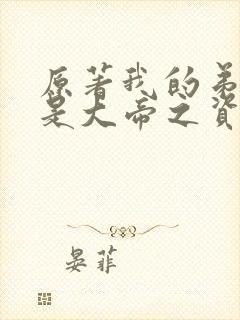 原著我的弟
是大帝之资
晏菲